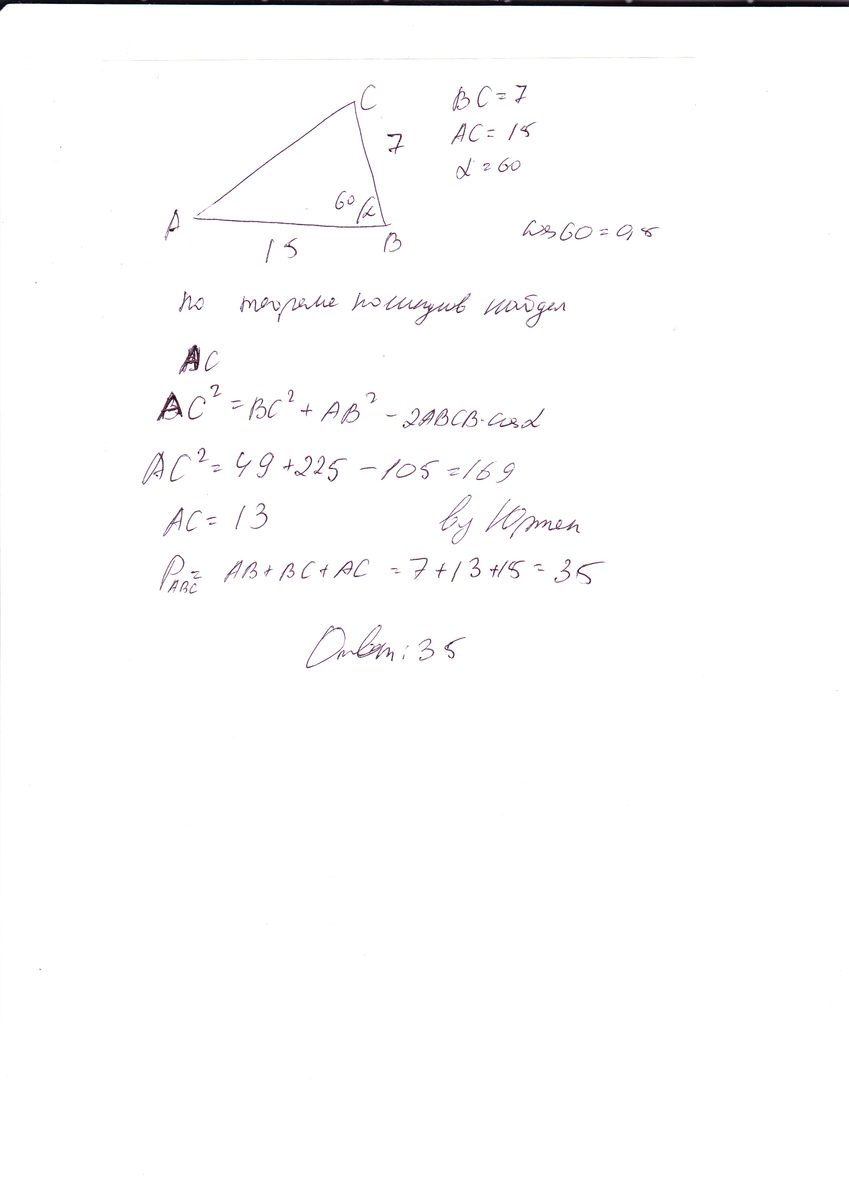 C
BC = 7
7
AC = 15
α = 60
60
α
A
15
B
cos60 = 0,5
по теореме косинусов найдем
AC
AC² = BC² + AB² - 2ABCB·cosα
AC² = 49 + 225 - 105 = 169
AC = 13
by Юрген
P ABC = AB + BC + AC = 7 + 13 + 15 = 35
Ответ: 35